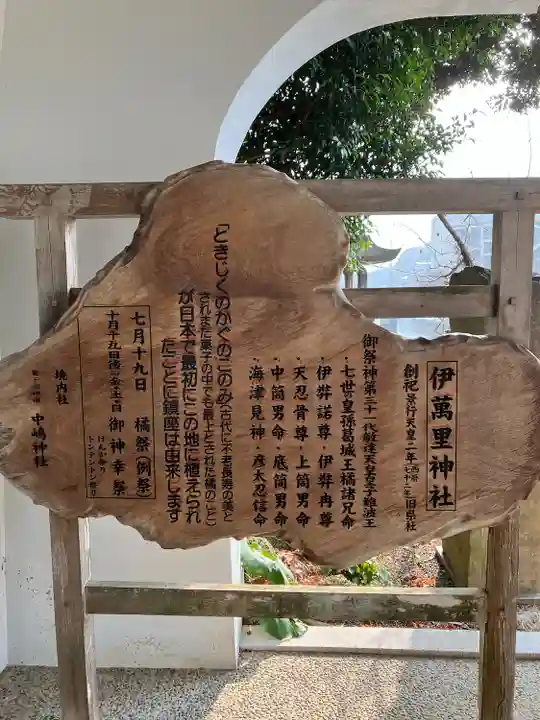 伊萬里神社
創祀 景行天皇二年(西暦七十二年)旧県社
御祭神第三十一代敏達天皇皇子難波王
・七世の皇孫葛城王橘諸兄命
・伊弉諾尊・伊弉冉尊
・天忍骨尊・上筒男命
・中筒男命・底筒男命
・海津見神・彦太忍信命
「ときじくのかぐのこのみ(古代に不老長寿の美と
されまた菓子の中でも最上とされた橘のこと)
が日本で最初にこの地に植えられ
たことに鎮座は由来します
七月十九日 橘祭(例祭)
十月十九日後の金土日 御神幸祭
けんか祭り
トンテントン祭り
境内社
菓子祖神 中嶋神社